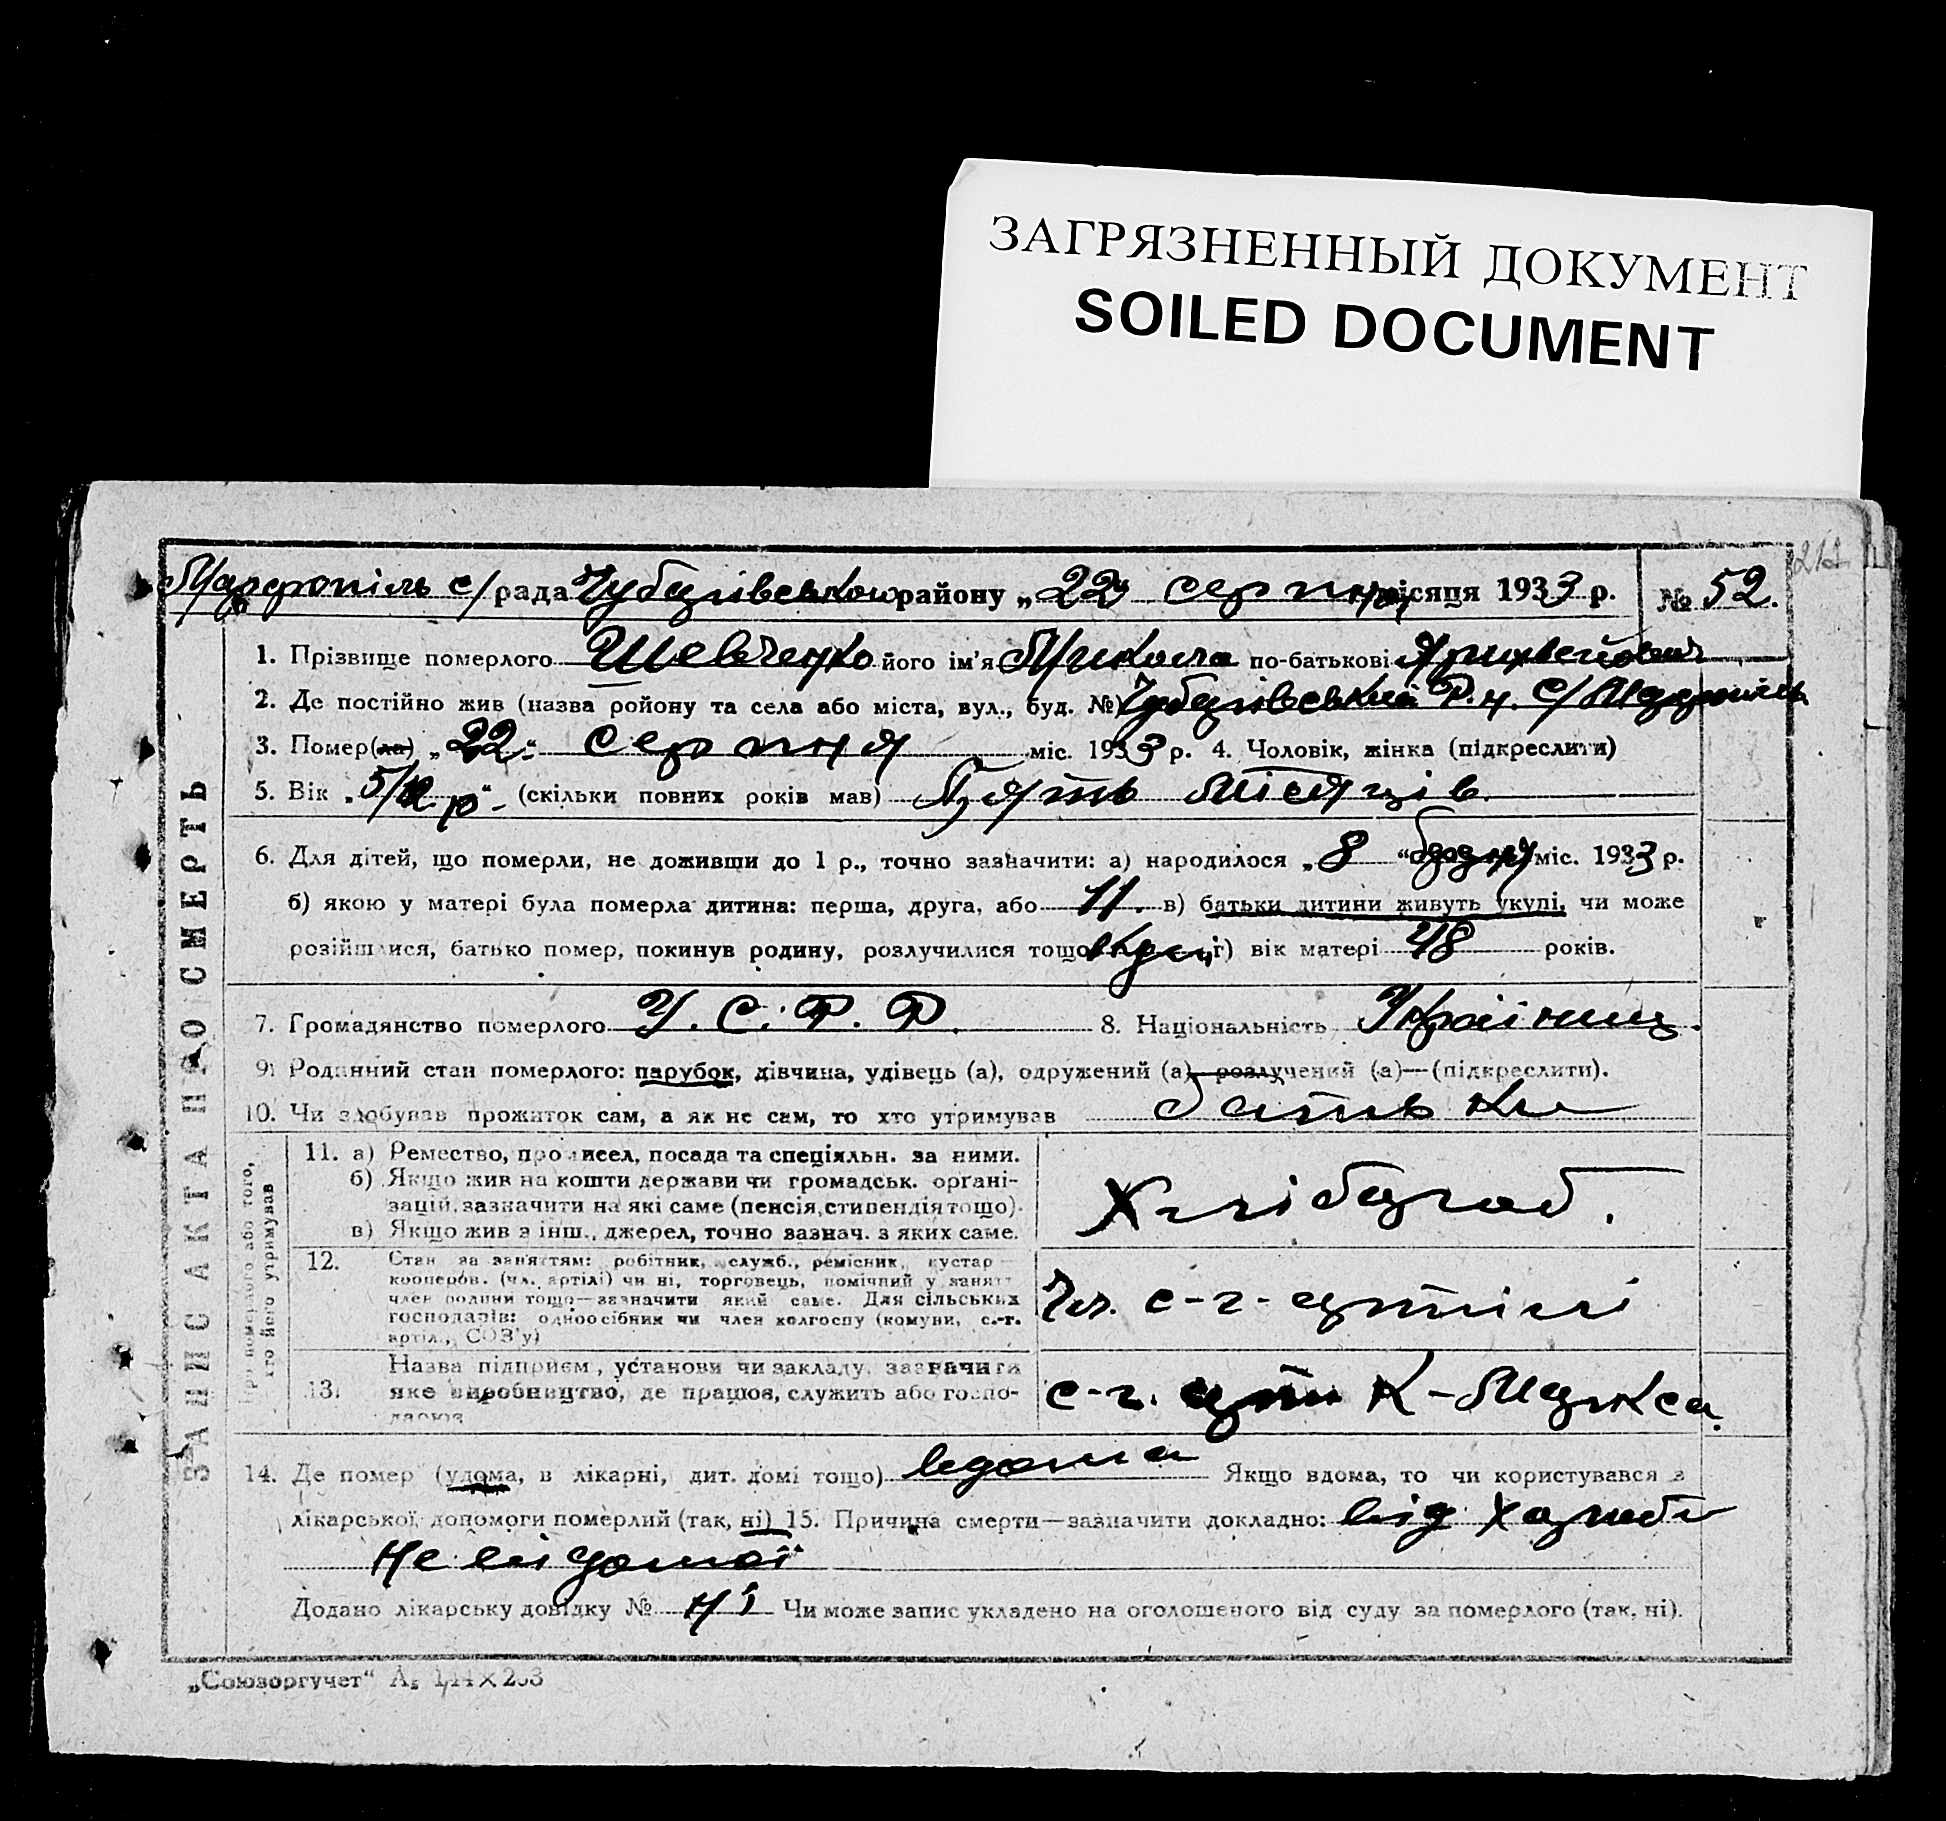 ЗАГРЯЗНЕННЫЙ ДОКУМЕНТ
SOILED DOCUMENT
с/рада району „22" серпня місяця 1933 р. № 52.
1. Прізвище померлого Шевченко його ім'я Микола по-батькові
2. Де постійно жив (назва ройону та села або міста, вул., буд. №) Р-н. С/
3. Помер(ла) „22" серпня міс. 1933 р. 4. Чоловік, жінка (підкреслити)
5. Вік „5/12 р" (скільки повних років мав) Пять місяців
6. Для дітей, що померли, не доживши до 1 р., точно зазначити: а) народилося „8" міс. 1933 р.
б) якою у матері була померла дитина: перша, друга, або 11. в) батьки дитини живуть укупі, чи може
розійшлися, батько помер, покинув родину, розлучилися тощо г) вік матері 48 років.
7. Громадянство померлого У. С. Р. Р. 8. Національність Українец.
9. Родинний стан померлого: парубок, дівчина, удівець (а), одружений (а), розлучений (а)—(підкреслити).
10. Чи здобував прожиток сам, а як не сам, то хто утримував батьки
ЗАПИС АКТА ПРО СМЕРТЬ
Про померлого або того, хто його утримував
11. а) Ремество, промисел, посада та спеціяльн. за ними.
б) Якщо жив на кошти держави чи громадськ. органі-
зацій, зазначити на які саме (пенсія, стипендія тощо).
в) Якщо жив з інш., джерел, точно зазнач. з яких саме.
Хлібороб.
12. Стан за заняттям: робітник, служб., ремісник, кустар
кооперов. (чл. артілі) чи ні, торговець, помічний у занятт
член родини тощо—зазначити який саме. Для сільських
господарів: одноосібник чи член колгоспу (комуни, с.-г.
артіл., СОЗ'у)
Чл. с-г- артілі
13. Назва підприєм, установи чи закладу, зазначити
яке виробництво, де працюв, служить або госпо-
дарюв
с-г. К-Маркса.
14. Де помер (удома, в лікарні, дит. домі тощо) вдома Якщо вдома, то чи користувався з
лікарської допомоги померлий (так, ні) 15. Причина смерти—зазначити докладно: від хароби
не відомої
Додано лікарську довідку № ні Чи може запис укладено на оголошеного від суду за померлого (так, ні).
„Союзоргучет"